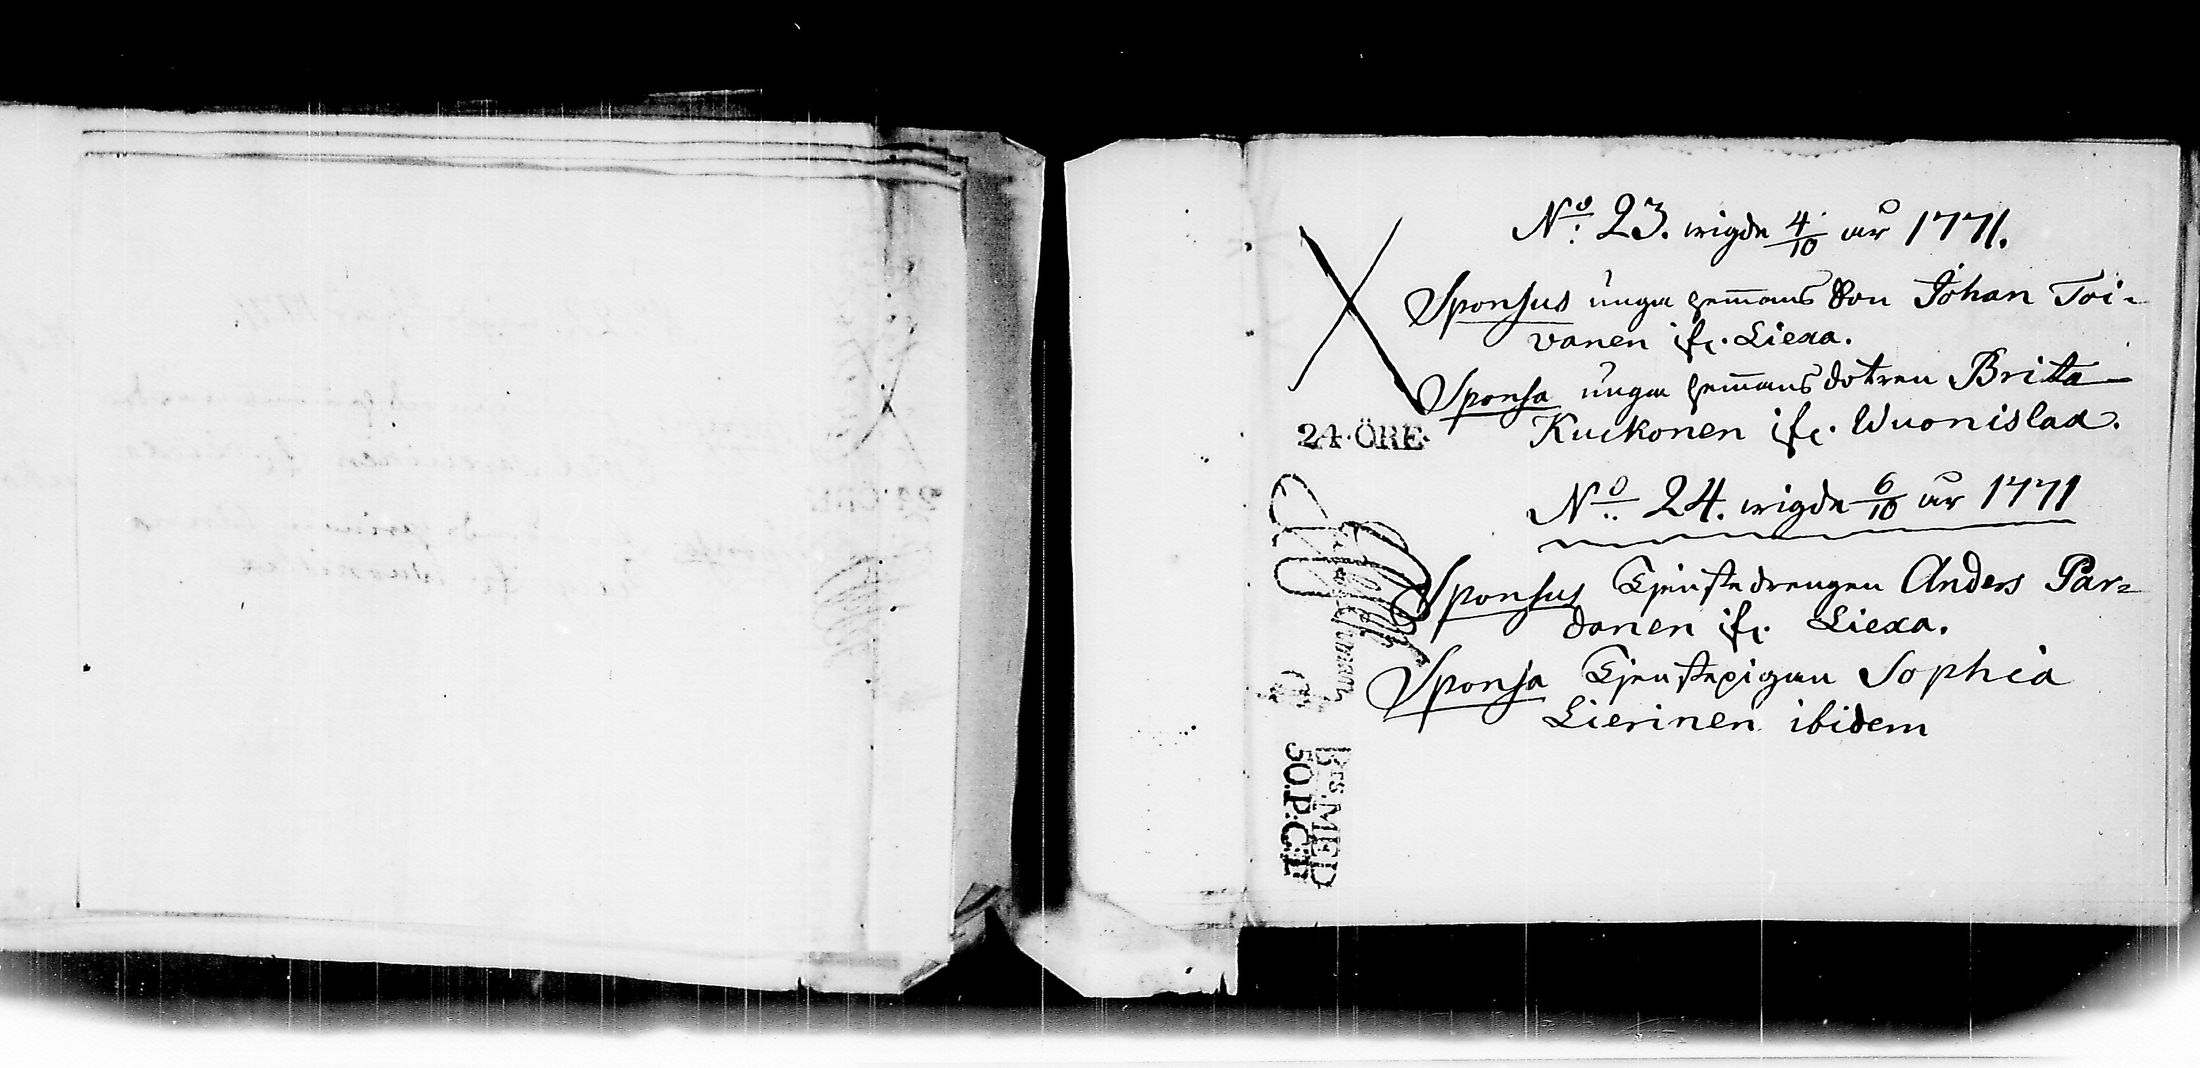 No: 23. wigde 4/10 år 1771.
Sponsus unga hem̄ans Son Johan Toi-
vanen ifr. Liexa.
Sponsa unga hem̄ans dotren Brita
Kuckonen ifr. Wuonislax.
24·ÖRE·
No: 24. wigde 6/10 år 1771
Sponsus Tjenstedrengen Anders Par=
danen ifr. Liexa.
Sponsa Tjenstepigan Sophia
Lierinen ibidem
Brs. MED
50.P:CT